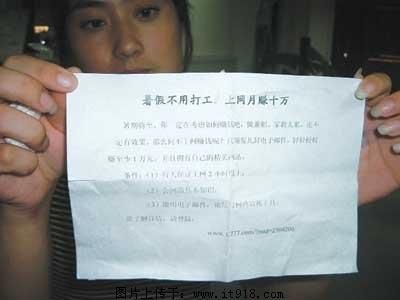 暑假不用打工，上网月赚十万
暑期将至，你一定在考虑如何赚钱吧，做兼职，家教太累，还不
定有效果，那么何不上网赚钱呢？只须发几封电子邮件，好好
赚至少1万元，并且拥有自己的精美网站。
条件：(1) 每天保证上网2小时
(2) 会网站基本知识；
(3) 能用电子邮件，
欲了解详情，请登陆：
图片上传于：www.it918.com